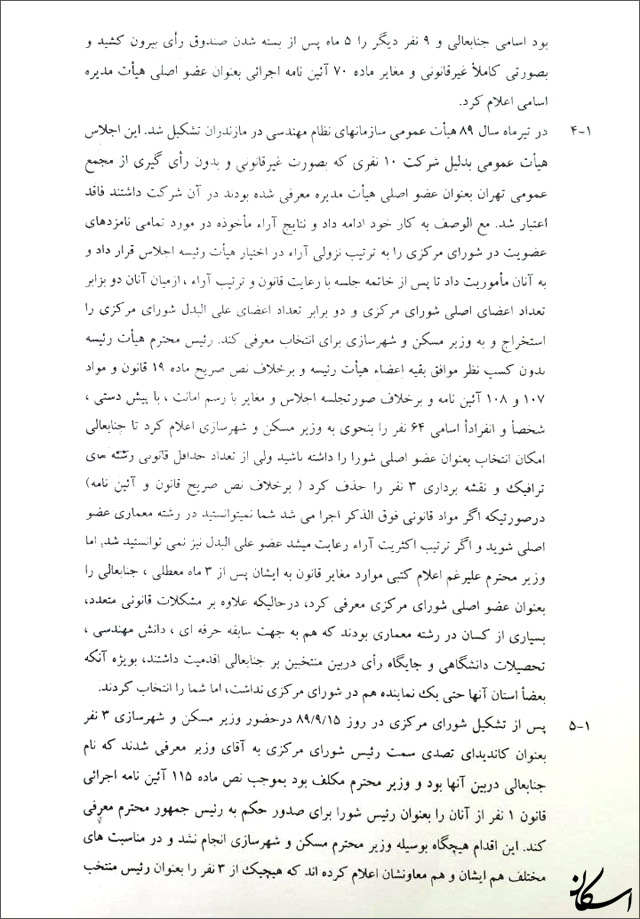 بود اسامی جنابعالی و ۹ نفر دیگر را ۵ ماه پس از بسته شدن صندوق رأی بیرون کشید و
بصورتی کاملأ غیرقانونی و مغایر ماده ۷۰ آئین نامه اجرائی بعنوان عضو اصلی هیأت مدیره
اسامی اعلام کرد.
۴-۱ در تیرماه سال ۸۹ هیأت عمومی سازمانهای نظام مهندسی در مازندران تشکیل شد. این اجلاس
هیأت عمومی بدلیل شرکت ۱۰ نفری که بصورت غیرقانونی و بدون رأی گیری از مجمع
عمومی تهران بعنوان عضو اصلی هیأت مدیره معرفی شده بودند در آن شرکت داشتند فاقد
اعتبار شد. مع الوصف به کار خود ادامه داد و نتایج آراء مأخوذه در مورد تمامی نامزدهای
عضویت در شورای مرکزی را به ترتیب نزولی آراء در اختیار هیأت رئیسه اجلاس قرار داد و
به آنان مأموریت داد تا پس از خاتمه جلسه با رعایت قانون و ترتیب آراء ، ازمیان آنان دو برابر
تعداد اعضای اصلی شورای مرکزی و دو برابر تعداد اعضای علی البدل شورای مرکزی را
استخراج و به وزیر مسکن و شهرسازی برای انتخاب معرفی کند. رئیس محترم هیأت رئیسه
بدون کسب نظر موافق بقیه اعضاء هیأت رئیسه و برخلاف نص صریح ماده ۱۹ قانون و مواد
۱۰۷ و ۱۰۸ آئین نامه و برخلاف صورتجلسه اجلاس و مغایر با رسم امانت ، با پیش دستی ،
شخصأ و انفرادأ اسامی ۶۴ نفر را بنحوی به وزیر مسکن و شهرسازی اعلام کرد تا جنابعالی
امکان انتخاب بعنوان عضو اصلی شورا را داشته باشید ولی از تعداد حداقل قانونی رشته های
ترافیک و نقشه برداری ۳ نفر را حذف کرد ( برخلاف نص صریح قانون و آئین نامه)
درصورتیکه اگر مواد قانونی فوق الذکر اجرا می شد شما نمیتوانستید در رشته معماری عضو
اصلی شوید و اگر ترتیب اکثریت آراء رعایت میشد عضو علی البدل نیز نمی توانستید شد. اما
وزیر محترم علیرغم اعلام کتبی موارد مغایر قانون به ایشان پس از ۳ ماه معطلی ، جنابعالی را
بعنوان عضو اصلی شورای مرکزی معرفی کرد، درحالیکه علاوه بر مشکلات قانونی متعدد،
بسیاری از کسان در رشته معماری بودند که هم به جهت سابقه حرفه ای ، دانش مهندسی ،
تحصیلات دانشگاهی و جایگاه رأی دربین منتخبین بر جنابعالی اقدمیت داشتند، بویژه آنکه
بعضأ استان آنها حتی یک نماینده هم در شورای مرکزی نداشت، اما شما را انتخاب کردند.
۵-۱ پس از تشکیل شورای مرکزی در روز ۸۹/۹/۱۵ درحضور وزیر مسکن و شهرسازی ۳ نفر
بعنوان کاندیدای تصدی سمت رئیس شورای مرکزی به آقای وزیر معرفی شدند که نام
جنابعالی دربین آنها بود و وزیر محترم مکلف بود بموجب نص ماده ۱۱۵ آئین نامه اجرائی
قانون ۱ نفر از آنان را بعنوان رئیس شورا برای صدور حکم به رئیس جمهور محترم معرفی
کند. این اقدام هیچگاه بوسیله وزیر محترم مسکن و شهرسازی انجام نشد و در مناسبت های
مختلف هم ایشان و هم معاونشان اعلام کرده اند که هیچیک از ۳ نفر را بعنوان رئیس منتخب
اسکان